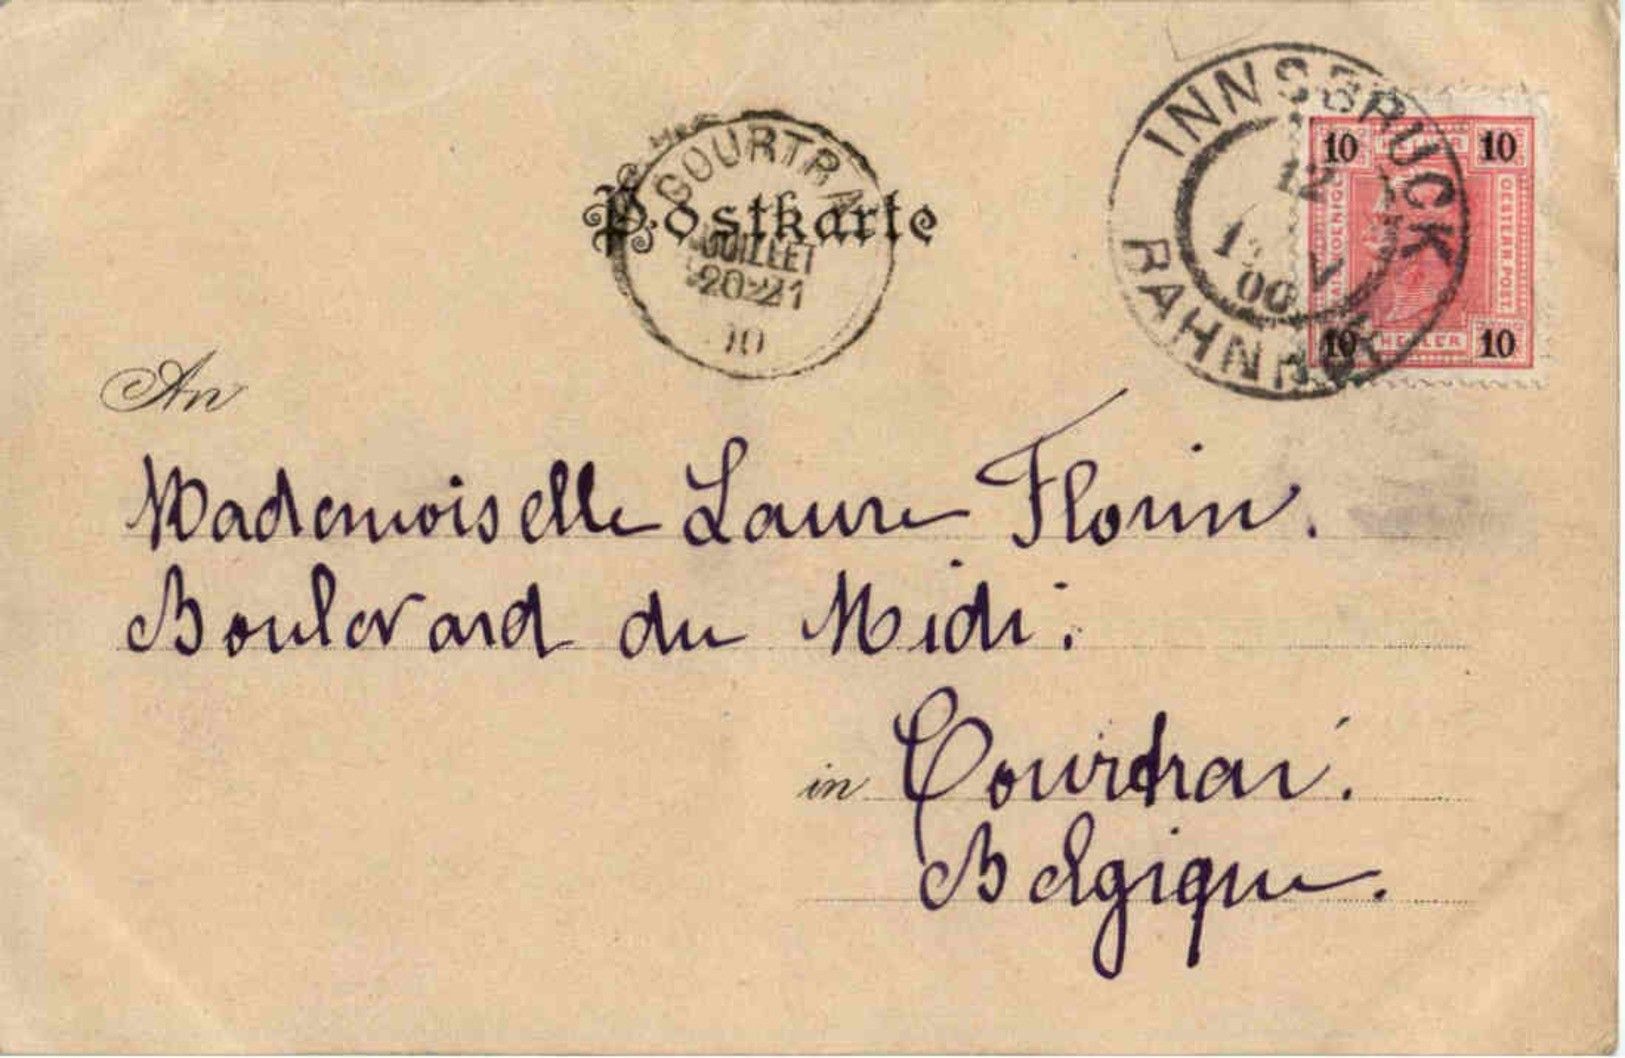 INNSBRUCK
12
00
BAHNHOF
10 HELLER 10
KAISERL. KOENIGL.
OESTERR. POST.
10 HELLER 10
COURTRA
Postkarte
JUILLET
20-21
An
Mademoiselle Laure Florin.
Boulevard du Midi.
in Courtrai.
Belgique.